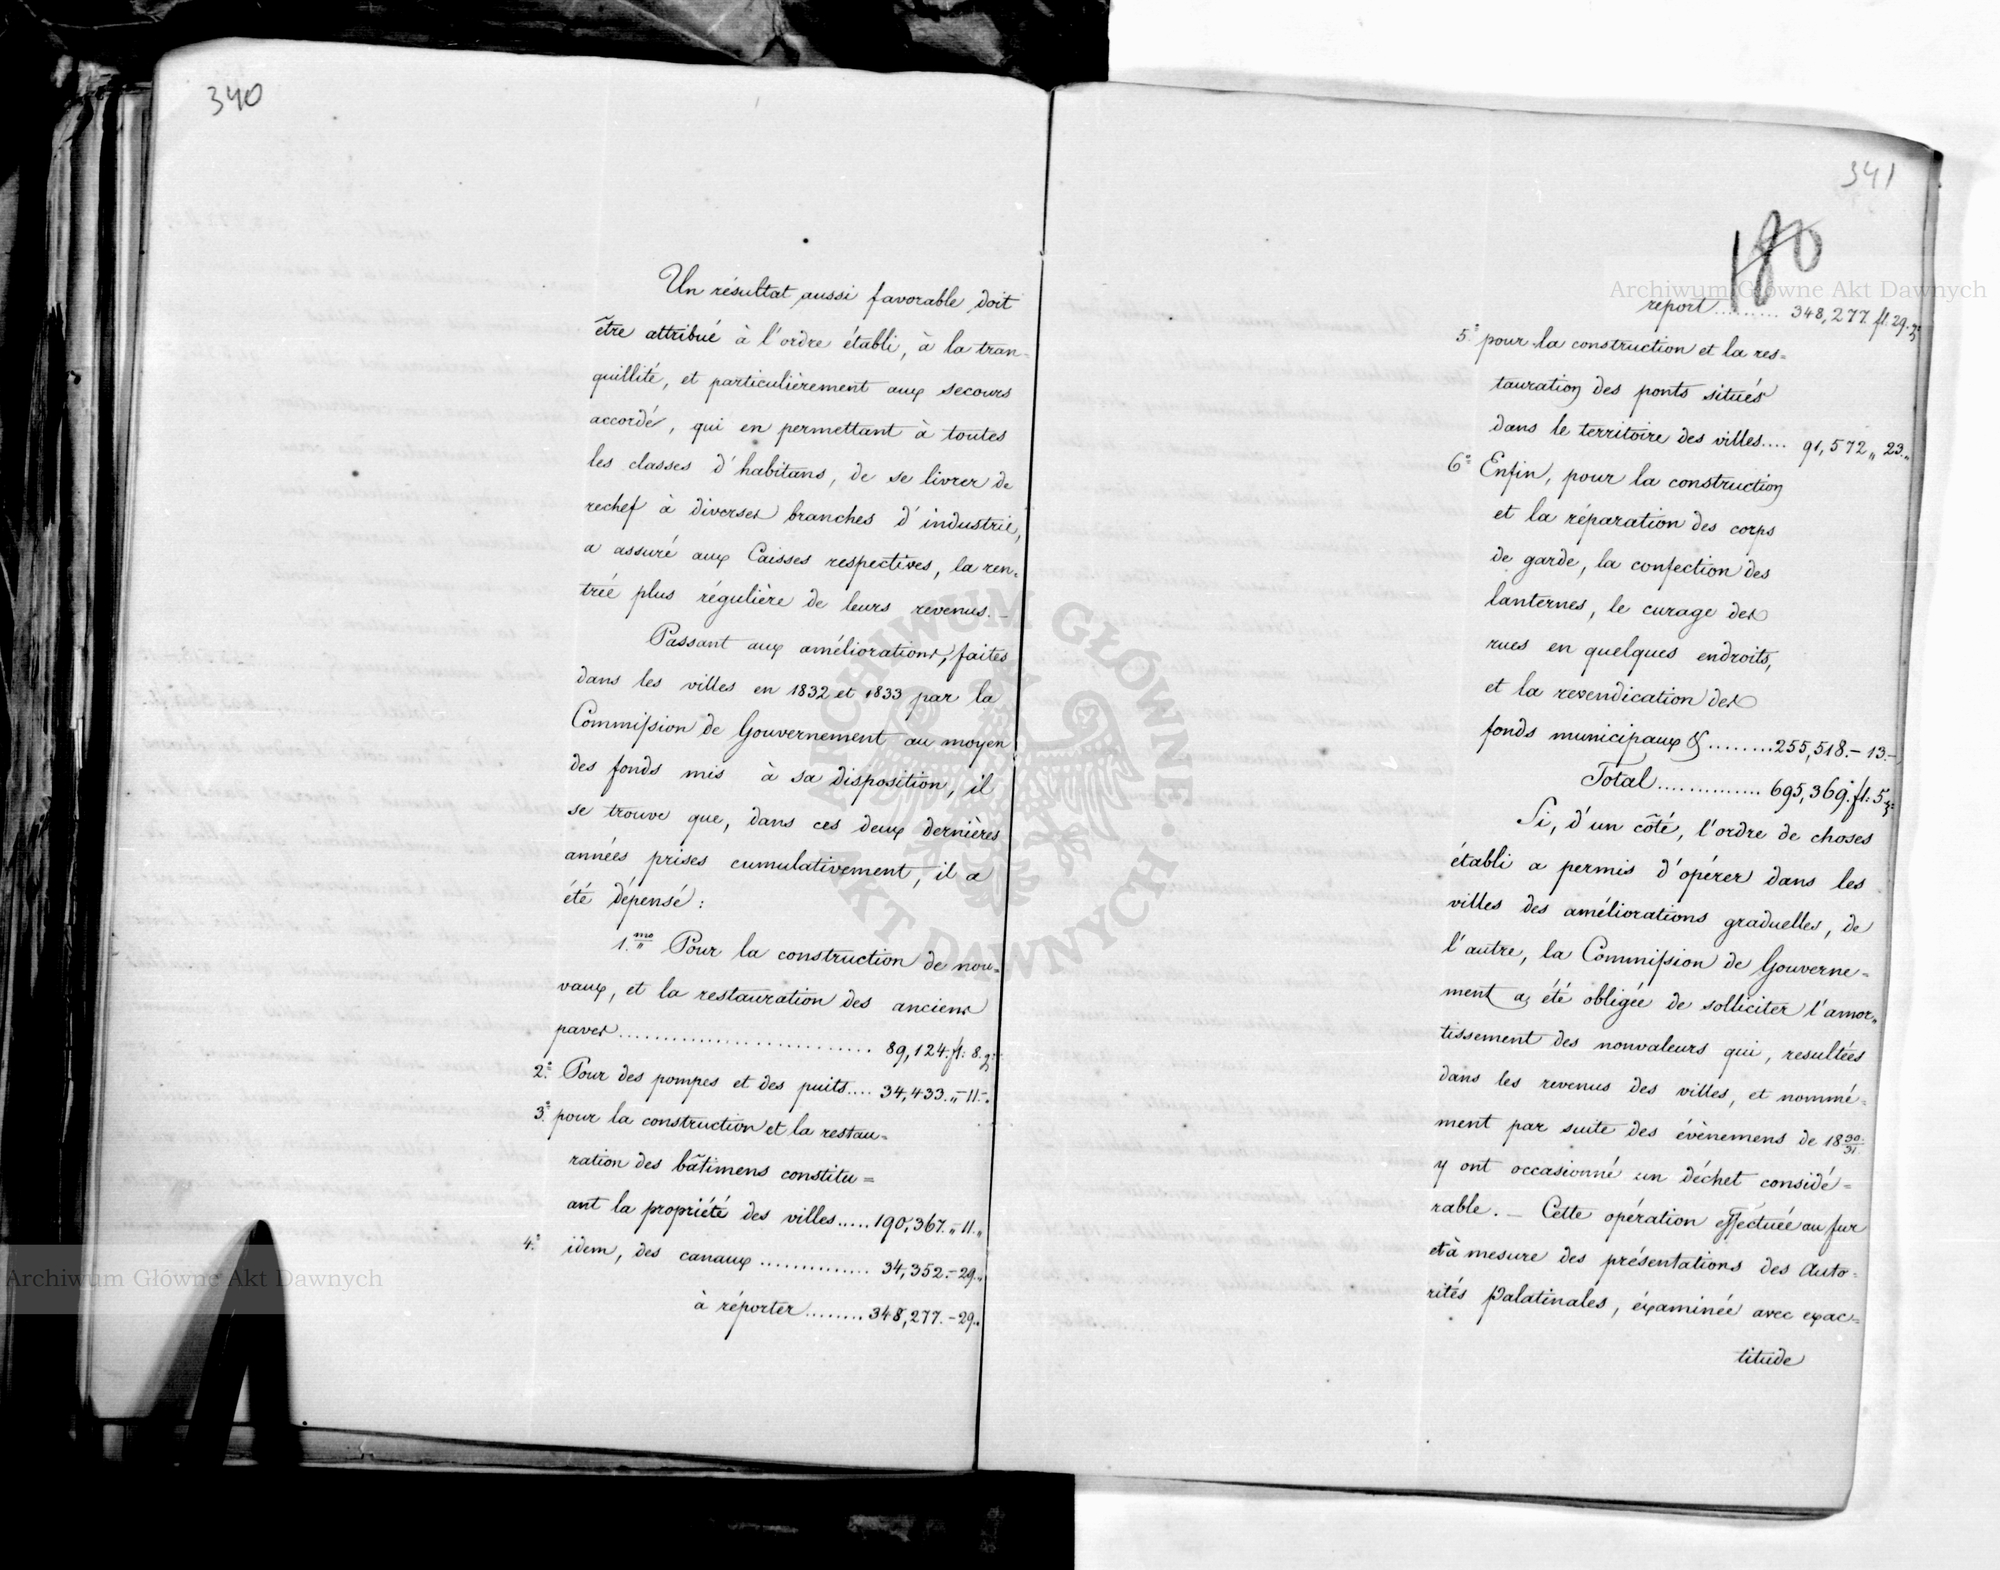 340
Un résultat aussi favorable doit
être attribué à l'ordre établi, à la tran-
quillité, et particulièrement aux secours
accordés, qui en permettant à toutes
les classes d'habitans, de se livrer de
rechef à diverses branches d'industrie,
a assuré aux Caisses respectives, la ren-
trée plus régulière de leurs revenus.-
Passant aux améliorations, faites
dans les villes en 1832 et 1833 par la
Commission de Gouvernement au moyen
des fonds mis à sa disposition, il
se trouve que, dans ces deux dernières
années prises cumulativement, il a
été dépensé:
1.mo Pour la construction de nou=
vaux, et la restauration des anciens
pavés........................... 89,124.fl: 8.g:
2.° Pour des pompes et des puits.... 34,433.„-11-.
3.° pour la construction et la restau=
ration des bâtimens constitu=
ant la propriété des villes.....190,367.„-11.„
4.° idem, des canaux .............. 34,352.-29.„
à réporter........348,277.-29.„
341
180
report......... 348,277. fl. 29. g:
5.° pour la construction et la res=
tauration des ponts situés
dans le territoire des villes.... 91,572 „ 23.„
6° Enfin, pour la construction
et la réparation des corps
de garde, la confection des
lanternes, le curage des
rues en quelques endroits,
et la revendication des
fonds municipaux &........255,518.- 13.-
Total.............. 695,369.fl: 5 g:
Si, d'un côté, l'ordre de choses
établi a permis d'opérer dans les
villes des améliorations graduelles, de
l'autre, la Commission de Gouverne=
ment a été obligée de solliciter l'amor=
tissement des nonvaleurs qui, resultées
dans les revenus des villes, et nommé=
ment par suite des évènemens de 1830/31.
y ont occasionné un déchet considé=
rable. - Cette opération effectuée au fur
et à mesure des présentations des Auto=
rités Palatinales, éxaminée avec exac=
titude
Archiwum Główne Akt Dawnych
Archiwum Główne Akt Dawnych
ARCHIWUM GŁÓWNE · AKT DAWNYCH ·